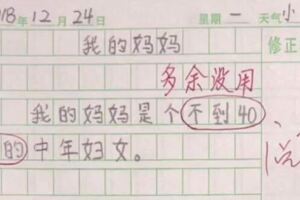 18年12月24日 星期一 天气小
我的妈妈 修正
多余没用
我的妈妈是个不到40
的中年妇女。